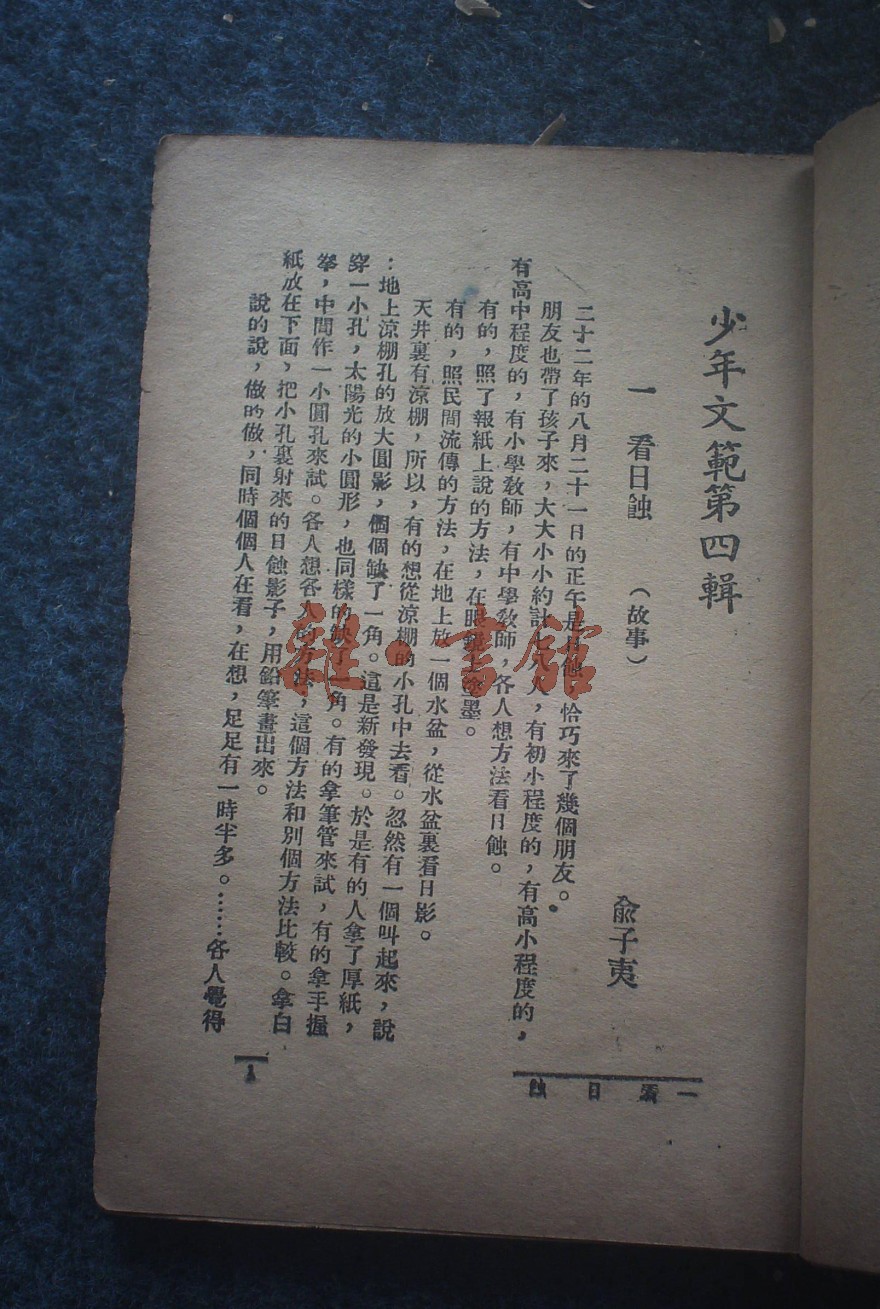 少年文範第四輯
一　看日蝕　（故事）
俞子夷
二十二年的八月二十一日的正午是日蝕，恰巧來了幾個朋友。
朋友也帶了孩子來，大大小小約計七八人，有初小程度的，有高小程度的，
有高中程度的，有小學教師，有中學教師，各人想方法看日蝕。
有的，照了報紙上說的方法，在眼鏡上塗墨。
有的，照民間流傳的方法，在地上放一個水盆，從水盆裏看日影。
天井裏有涼棚，所以，有的想從涼棚的小孔中去看。忽然有一個叫起來，說
：地上涼棚孔的放大圓影，個個缺了一角。這是新發現。於是有的人拿了厚紙，
穿一小孔，太陽光的小圓形，也同樣的缺了一角。有的拿筆管來試，有的拿手握
拳，中間作一小圓孔來試。各人想各人的方法，這個方法和別個方法比較。拿白
紙放在下面，把小孔裏射來的日蝕影子，用鉛筆畫出來。
說的說，做的做，同時個個人在看，在想，足足有一時半多。……各人覺得
一看日蝕
1
雜·書館